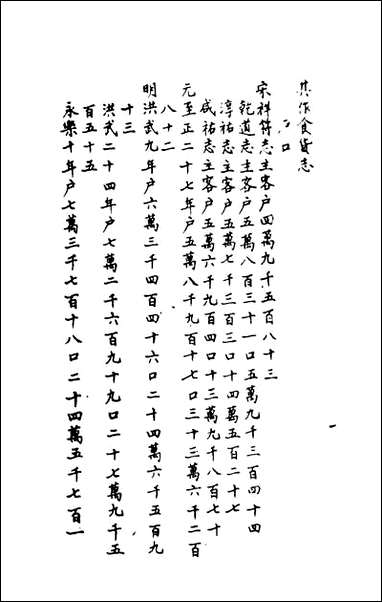 其作食貨志
户口
宋祥符志主客户四萬九千五百八十三
乾道志主客户五萬八百三十一口五萬九千三百四十四
淳祐志主客户五萬七千三百三口十四萬五百二十七
咸祐志主客户五萬六千九百四口十三萬九千八百七十
元至正二十七年户五萬八千九百十七口三十三萬六千二百
八十二
明洪武九年户六萬三千四百四十六口二十四萬六千五百九
十三
洪武二十四年户七萬二千六百九十九口二十七萬九千五
百五十五
永樂十年户七萬三千七百十八口二十四萬五千七百一